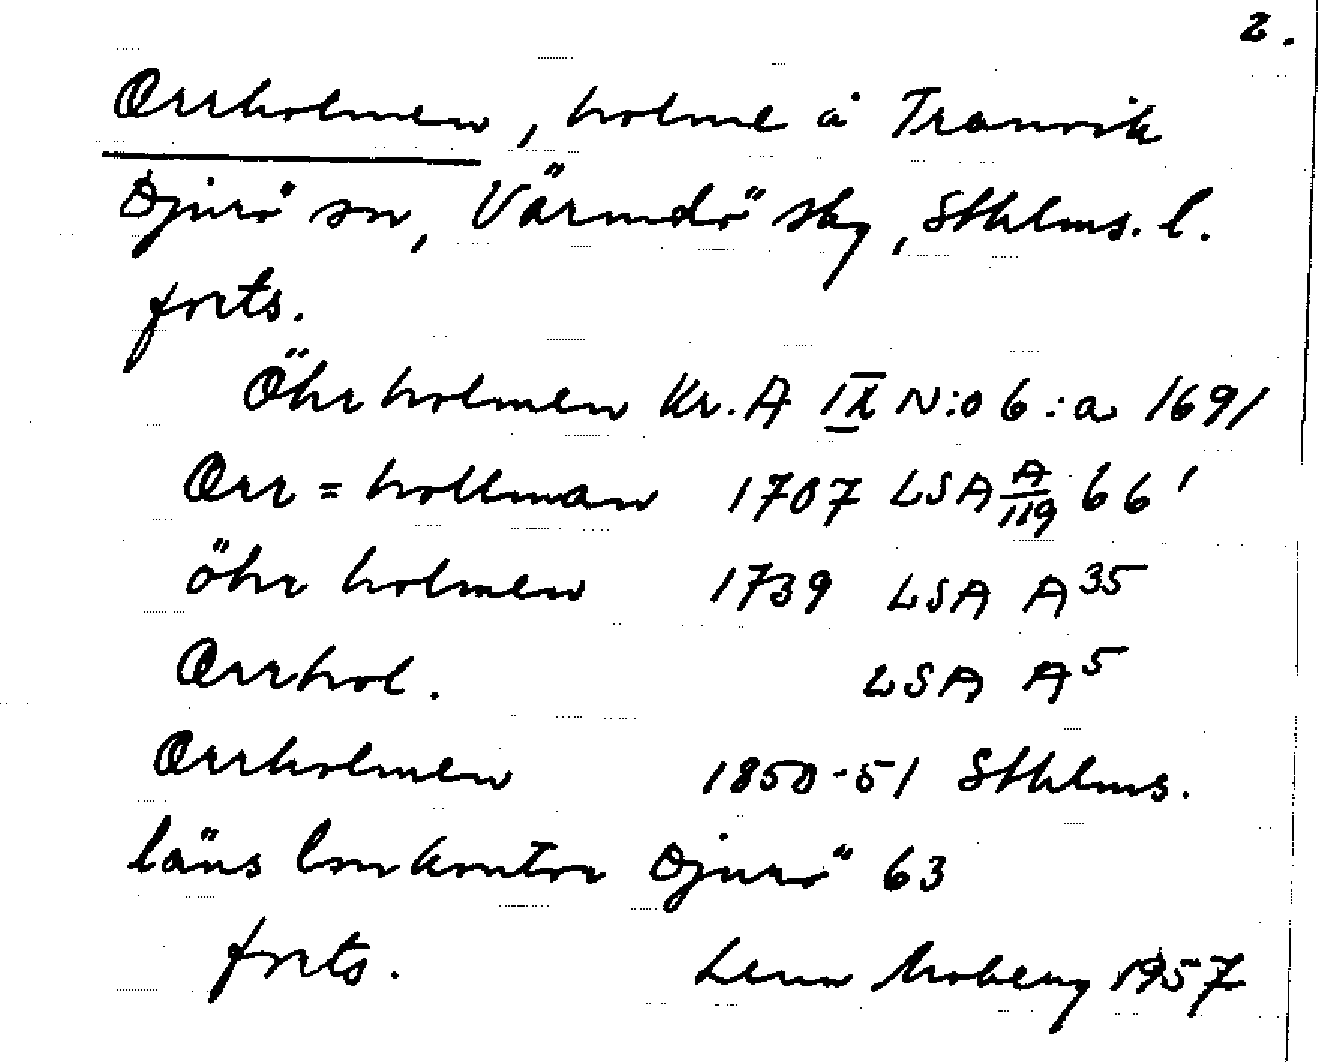 2.
Orrholmen, holme å Tranvik
Djurö sn, Värmdö sky, Sthlms. l.
forts.
Öhrholmen Kr. A IX N:o 6:a 1691
Orr=hollman 1707 LSA A/119 66'
öhr holmen 1739 LSA A³⁵
Orrhol. LSA A⁵
Orrholmen 1850-51 Sthlms.
läns lm kontor Djurö 63
forts. Lena Moberg 1957